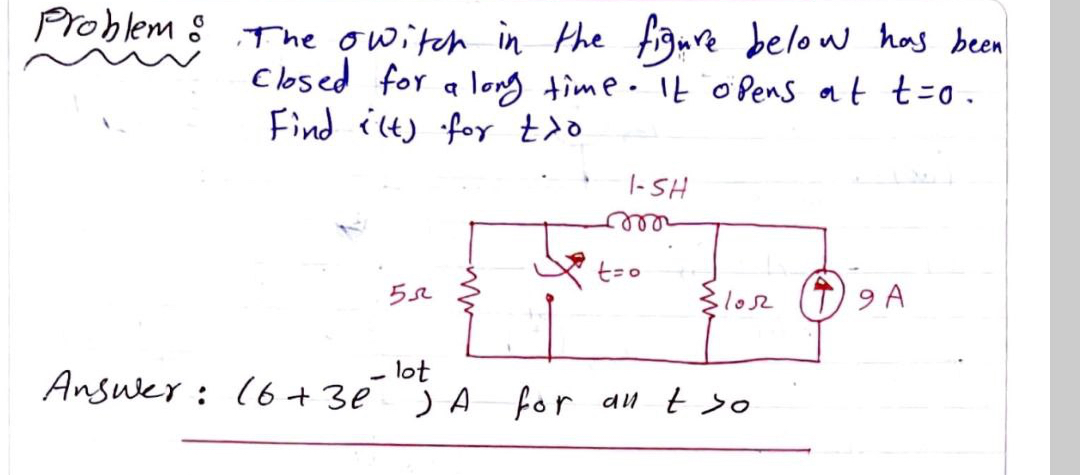 Problem : The switch in the figure below has been
closed for a long time. It opens at t=0.
Find i(t) for t>0
1.5H
t=0
5Ω
10Ω
9 A
Answer : (6+3e^-10t) A for all t >0